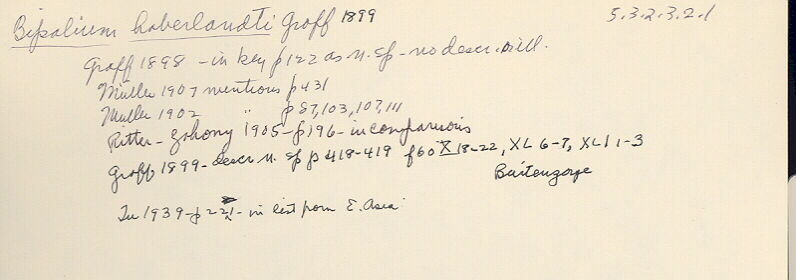 Bipalium haberlandti Graff 1899 5.3.2.3.2.1
Graff 1898 - in key p122 as n. sp - no descr. ill.
Müller 1907 mentions p431
Muller 1902 " p 87, 103, 107, 111
Ritter-Zahony 1905 - p196 - in comparisons
Graff, 1899 - descr n. sp p 418-419 f60 X 18-22, XL 6-7, XLI 1-3
Buitenzorge
Tu 1939 - p 221 - in list from E. Asia